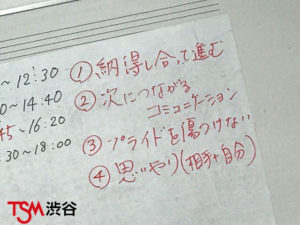 ~12:30
~14:40
~16:20
30~18:00
① 納得し合って進む
② 次につながる
コミュニケーション
③ プライドを傷つけない
④ 思いやり(相手+自分)
TSM渋谷